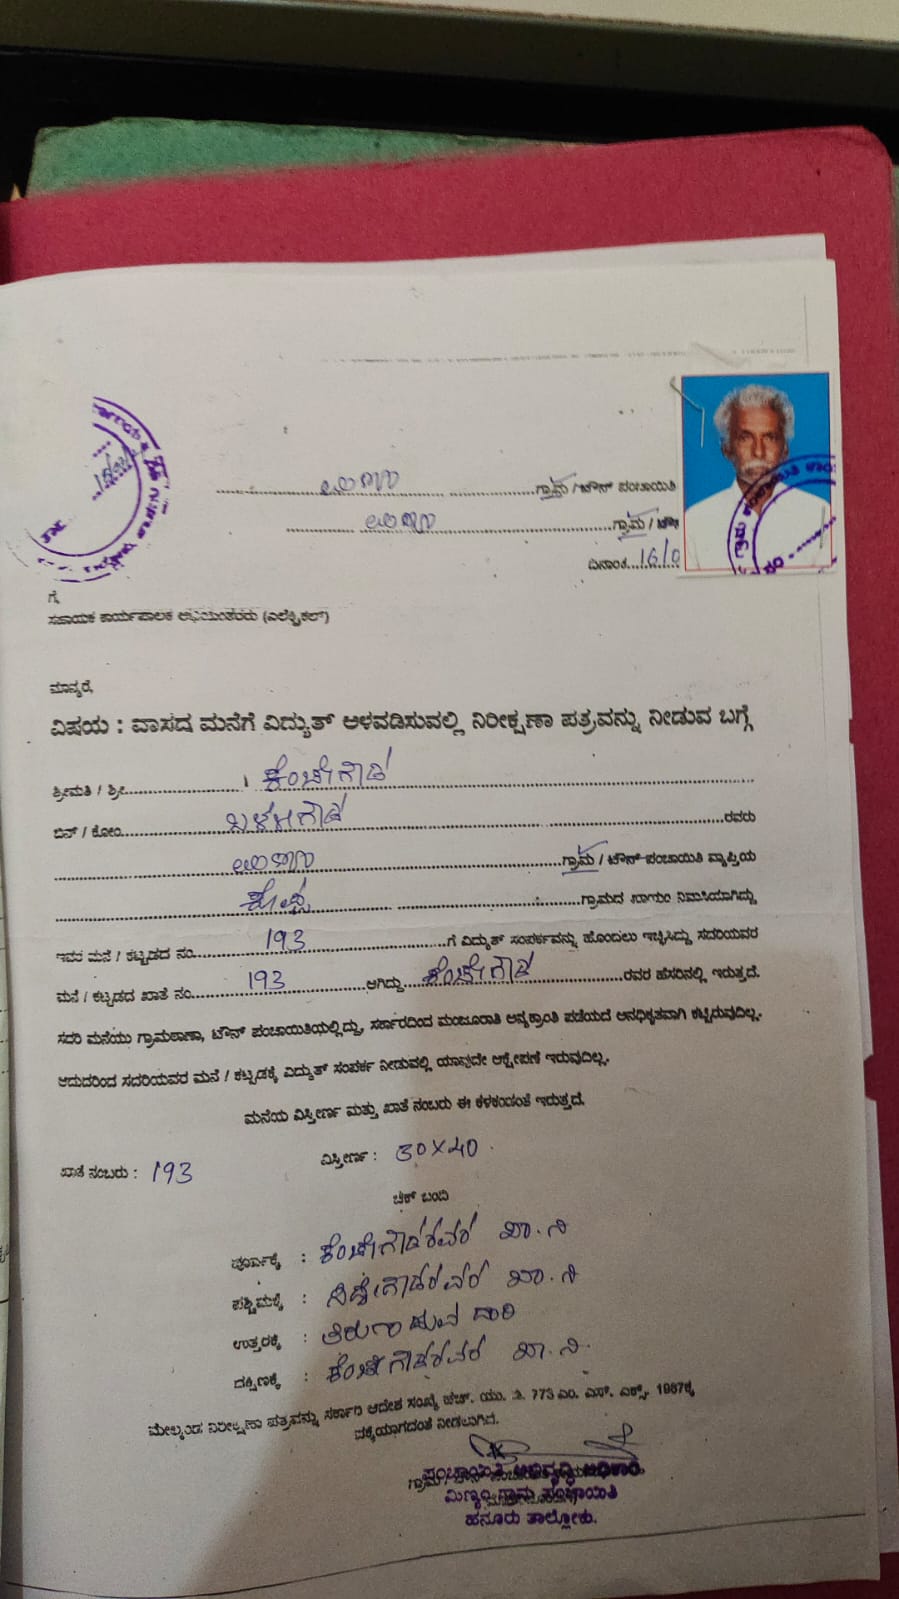 ಗ್ರಾಮ / ಟೌನ್ ಪಂಚಾಯಿತಿ
ಗ್ರಾಮ / ಟೌ
ದಿನಾಂಕ....16/0
ಗೆ,
ಸಹಾಯಕ ಕಾರ್ಯಪಾಲಕ ಅಭಿಯಂತರರು (ಎಲೆಕ್ಟ್ರಿಕಲ್)
ಮಾನ್ಯರೆ,
ವಿಷಯ : ವಾಸದ ಮನೆಗೆ ವಿದ್ಯುತ್ ಅಳವಡಿಸುವಲ್ಲಿ ನಿರೀಕ್ಷಣಾ ಪತ್ರವನ್ನು ನೀಡುವ ಬಗ್ಗೆ
ಶ್ರೀಮತಿ / ಶ್ರೀ........ ಕೆಂಚೇಗೌಡ
ಬಿನ್ / ಕೋಂ........ ರವರು
ಗ್ರಾಮ / ಟೌನ್ ಪಂಚಾಯಿತಿ ವ್ಯಾಪ್ತಿಯ
ಗ್ರಾಮದ ಖಾಯಂ ನಿವಾಸಿಯಾಗಿದ್ದು
ಇವರ ಮನೆ / ಕಟ್ಟಡದ ನಂ........ 193 ........ಗೆ ವಿದ್ಯುತ್ ಸಂಪರ್ಕವನ್ನು ಹೊಂದಲು ಇಚ್ಛಿಸಿದ್ದು ಸದರಿಯವರ
ಮನೆ / ಕಟ್ಟಡದ ಖಾತೆ ನಂ........ 193 ........ ಆಗಿದ್ದು ........ ಕೆಂಚೇಗೌಡ ........ ರವರ ಹೆಸರಿನಲ್ಲಿ ಇರುತ್ತದೆ.
ಸದರಿ ಮನೆಯು ಗ್ರಾಮಠಾಣಾ, ಟೌನ್ ಪಂಚಾಯಿತಿಯಲ್ಲಿದ್ದು, ಸರ್ಕಾರದಿಂದ ಮಂಜೂರಾತಿ ಅನ್ಯಕ್ರಾಂತಿ ಪಡೆಯದೆ ಅನಧಿಕೃತವಾಗಿ ಕಟ್ಟಿರುವುದಿಲ್ಲ.
ಆದುದರಿಂದ ಸದರಿಯವರ ಮನೆ / ಕಟ್ಟಡಕ್ಕೆ ವಿದ್ಯುತ್ ಸಂಪರ್ಕ ನೀಡುವಲ್ಲಿ ಯಾವುದೇ ಆಕ್ಷೇಪಣೆ ಇರುವುದಿಲ್ಲ.
ಮನೆಯ ವಿಸ್ತೀರ್ಣ ಮತ್ತು ಖಾತೆ ನಂಬರು ಈ ಕೆಳಕಂಡಂತೆ ಇರುತ್ತದೆ.
ಖಾತೆ ನಂಬರು : 193 ವಿಸ್ತೀರ್ಣ : 30×40
ಚೆಕ್ ಬಂದಿ
ಪೂರ್ವಕ್ಕೆ : ಕೆಂಚೇಗೌಡರವರ ಖಾ. ನಿ
ಪಶ್ಚಿಮಕ್ಕೆ : ಸಿದ್ದೇಗೌಡರವರ ಖಾ. ನಿ
ಉತ್ತರಕ್ಕೆ : ತಿರುಗಾಡುವ ದಾರಿ
ದಕ್ಷಿಣಕ್ಕೆ : ಕೆಂಚೇಗೌಡರವರ ಖಾ. ನಿ.
ಮೇಲ್ಕಂಡ ನಿರೀಕ್ಷಣಾ ಪತ್ರವನ್ನು ಸರ್ಕಾರಿ ಆದೇಶ ಸಂಖ್ಯೆ ಹೆಚ್. ಯು. 773 ಎಂ. ಎಸ್. ಎಕ್ಸ್. 1987ಕ್ಕೆ
ನೀಡಲಾಗಿದೆ.
ಪಂಚಾಯಿತಿ ಅಭಿವೃದ್ಧಿ ಅಧಿಕಾರಿ
ಮಿಣ್ಯಂ ಗ್ರಾಮ ಪಂಚಾಯಿತಿ
ಹನೂರು ತಾಲ್ಲೋಕು.